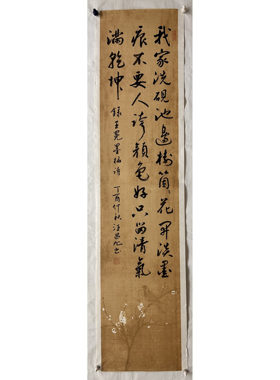 我家洗硯池邊樹箇々花開淡墨
痕不要人誇顏色好只留清氣
滿乾坤 錄王冕墨梅詩 丁酉仲秋汪